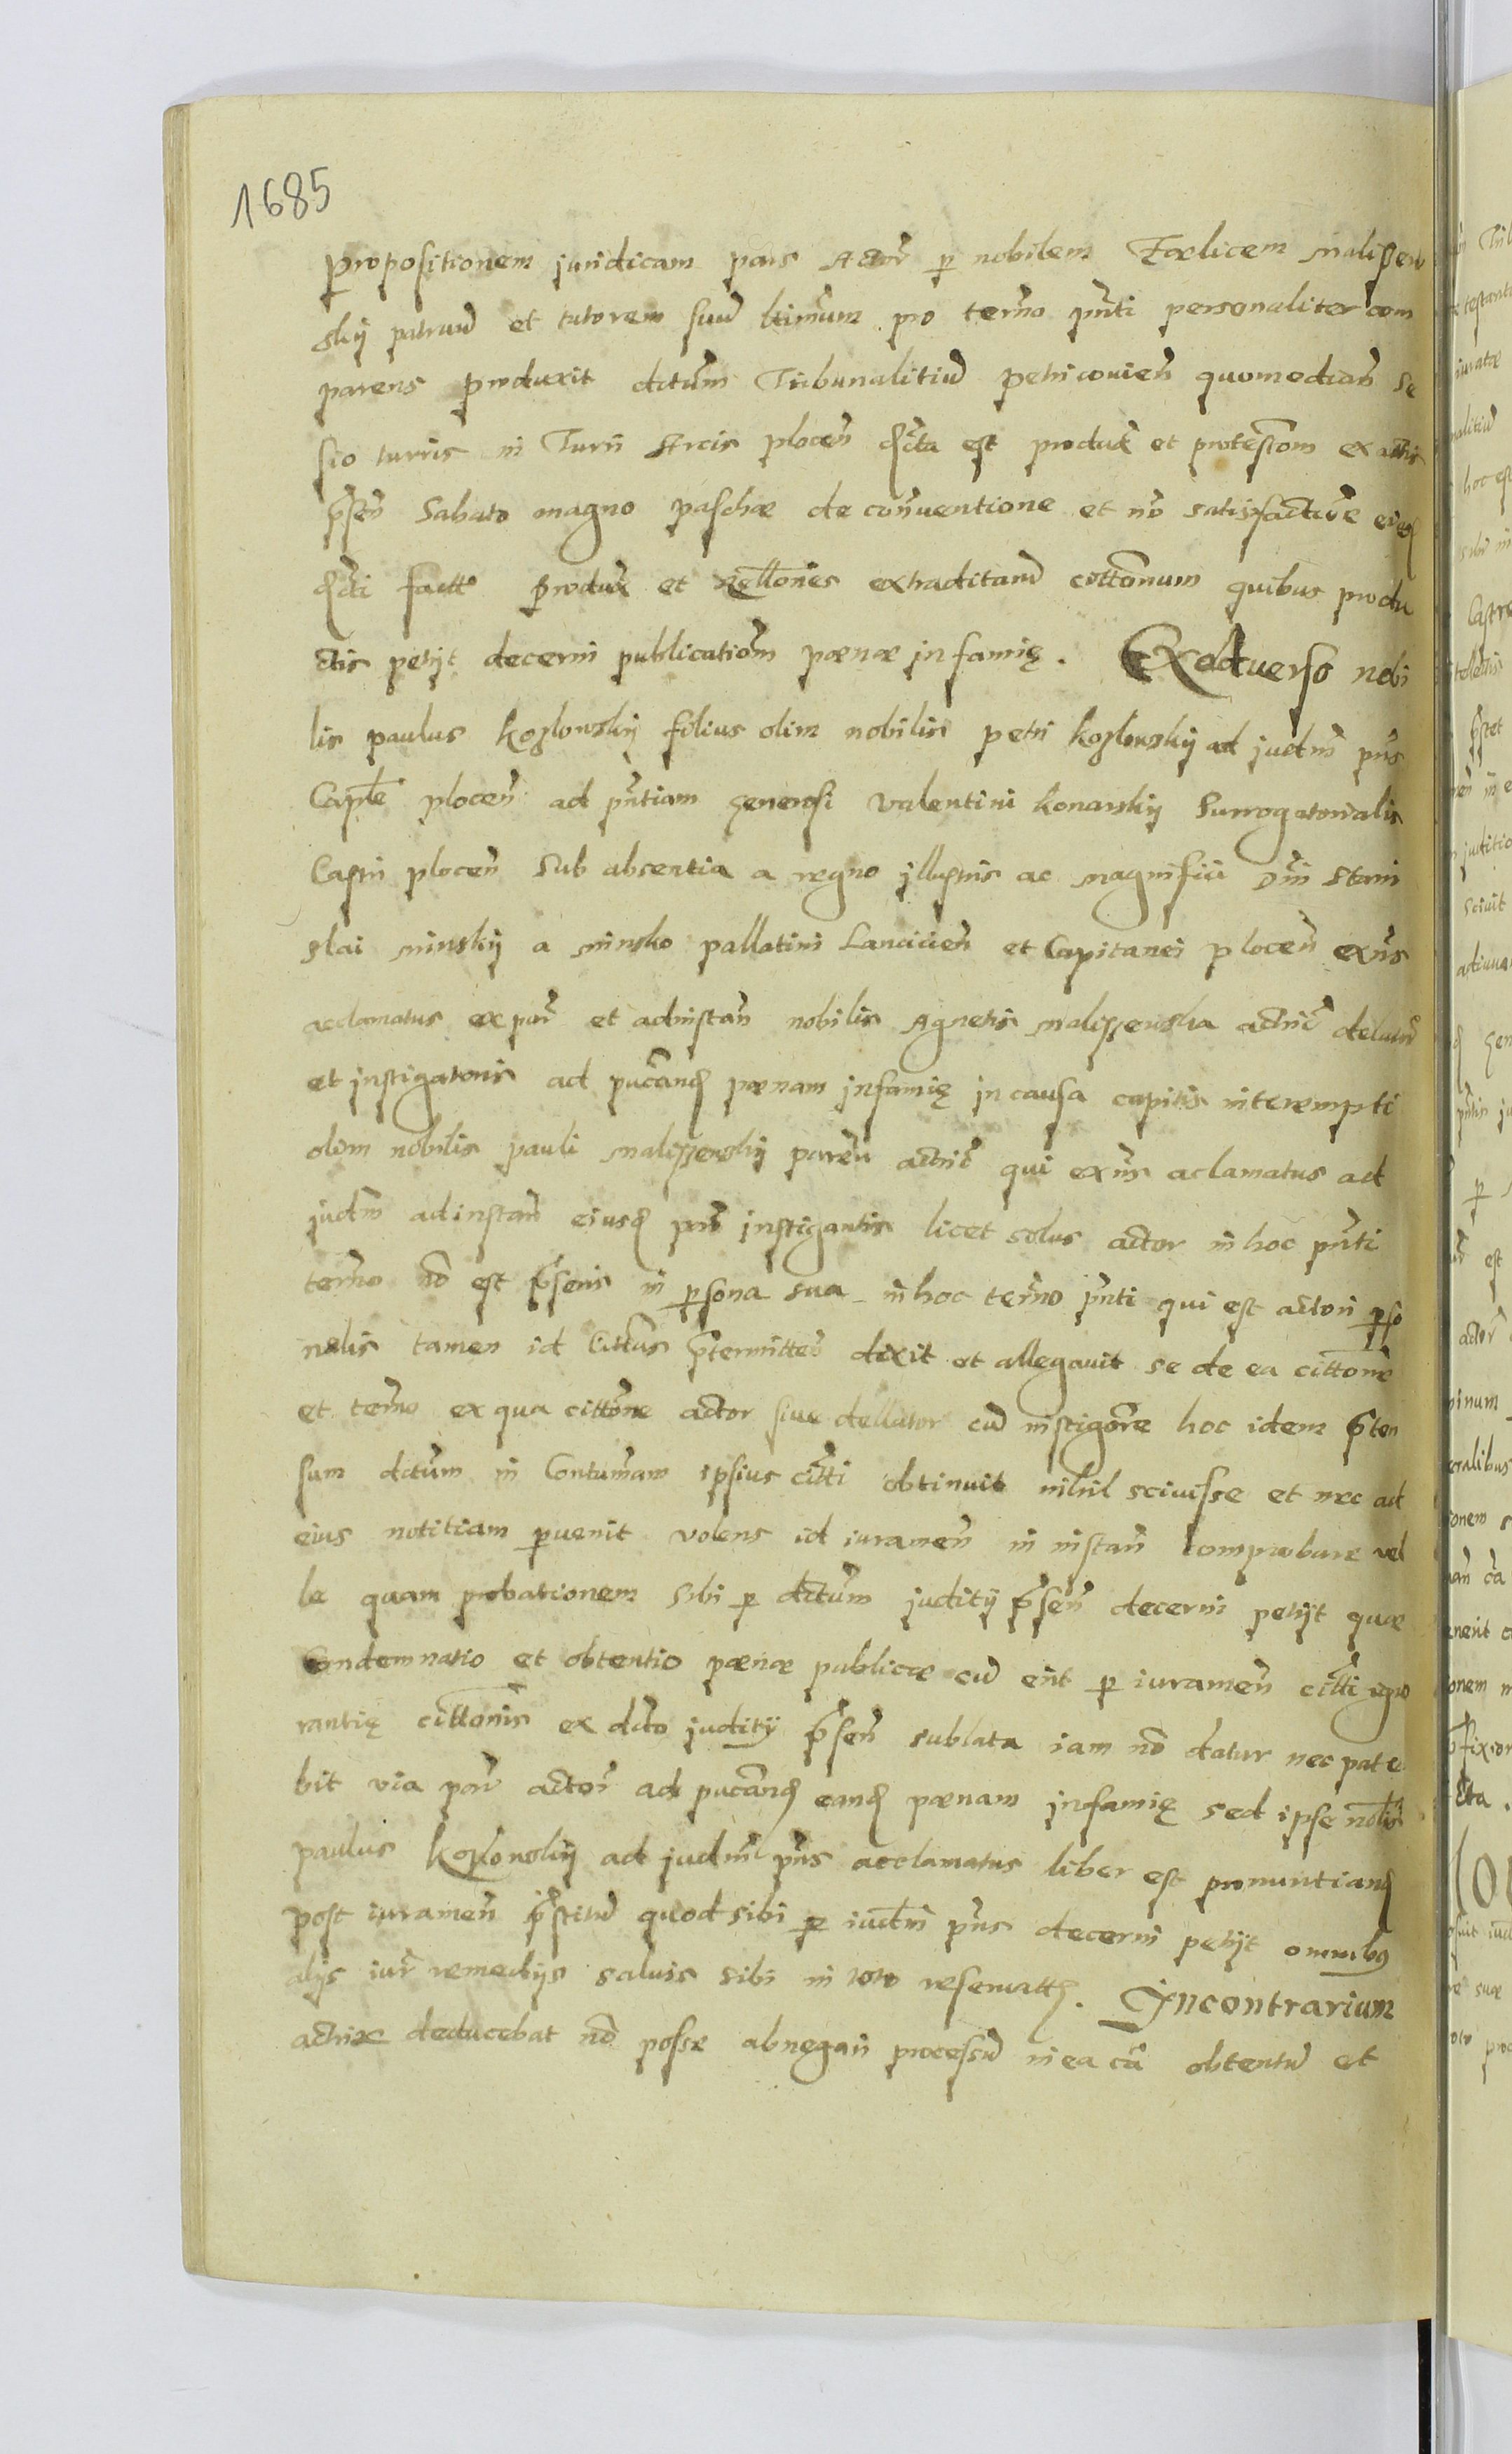 1685
Propositionem juridicam pars Actor̃ p nobilem Fœlicem Maliszew
skij patruũ et tutorem suũ ltimũm pro termo pñti personaliter com
parens produxit dctũm Tribunalitiũ petricouieñ quomodoañ se
sio turris in Turri Arcis plocen̄ dcta est produx̄ et protestom ex actis
p̃señ Sabato magno paschæ de conuentione et nõ satisfactiõe
facttᵒ Produx̄ et rellones extraditarũ cittonum quibus produ
ctis petijt decerni publicationem pœnæ infamię. Exaduerso nobi
lis paulus Kozlowskij filius olim nobilis petri kozlowskij ad judm pñs
Caple plocen̄ ad pñtiam generosi valentini konarskij Surrogatorialis
Castri plocen̄ sub absentia a regno jllustris ac magnifici Dñi Stani
slai minskij a minsko pallatini Lancicien̄ et Capitanei plocen̄ exñs
acclamatus ex par̃ et ad instañ nobilis Agnetis maliszewska actric̃ delator̃
et instigatoris ad pucand pœnam jnfamię jn causa capitis interempti
olim nobilis pauli maliszewskij pareñ actric̃ qui exñs aclamatus ad
judm̃ ad instañ eiusd par̃ jnstigantis licet solus actor in hoc pñti
termo nõ est p̃sens in psona sua in hoc termo pñti qui est actori pso
nalis tamen id Cittus p̃termitteñ dixit et allegauit se de ea cittone
et termo ex qua cittone actor siue dellator cũ instigore hoc idem p̃ten
sum dctũm in Contumam ipsius citti obtinuit nihil sciuisse et nec ad
eius notitiam peruenit volens id iuramen̄ in instañ comprobare vel
le quam probationem sibi p dctũm juditij p̃señ decerni petijt quæ
condemnatio et obtentio pœnæ publicæ cũ erit p iuramen̄ citti igno
rantię cittonis ex dcto juditij p̃señ sublata iam nõ datur nec pate
bit via par̃ actor̃ ad pucand eand pœnam jnfamię sed ipse nblis
paulus Kozlowskij ad judm̃ pñs acclamatus liber est pronuntiand
post iuramen̄ p̃stitũ quod sibi p iudm̃ pñs decerni petijt omnibꝫ
alijs iur̃ remedijs saluis sibi in toto reseruatt. Jncontrarium
actrix deducebat nõ posse abnegari processũ in ea cã obtentũ et